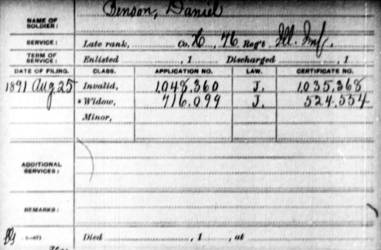 Benson, Daniel
NAME OF SOLDIER:
SERVICE: Late rank, Co. K, 76 Reg't Ill. Inf.
TERM OF SERVICE: Enlisted , 1 Discharged , 1
DATE OF FILING. CLASS. APPLICATION NO. LAW. CERTIFICATE NO.
1891 Aug 25 Invalid, 1,048,360 J. 1,035,368
* Widow, 716,099 J. 524,554
Minor,
ADDITIONAL SERVICES:
REMARKS:
Died , 1 , at